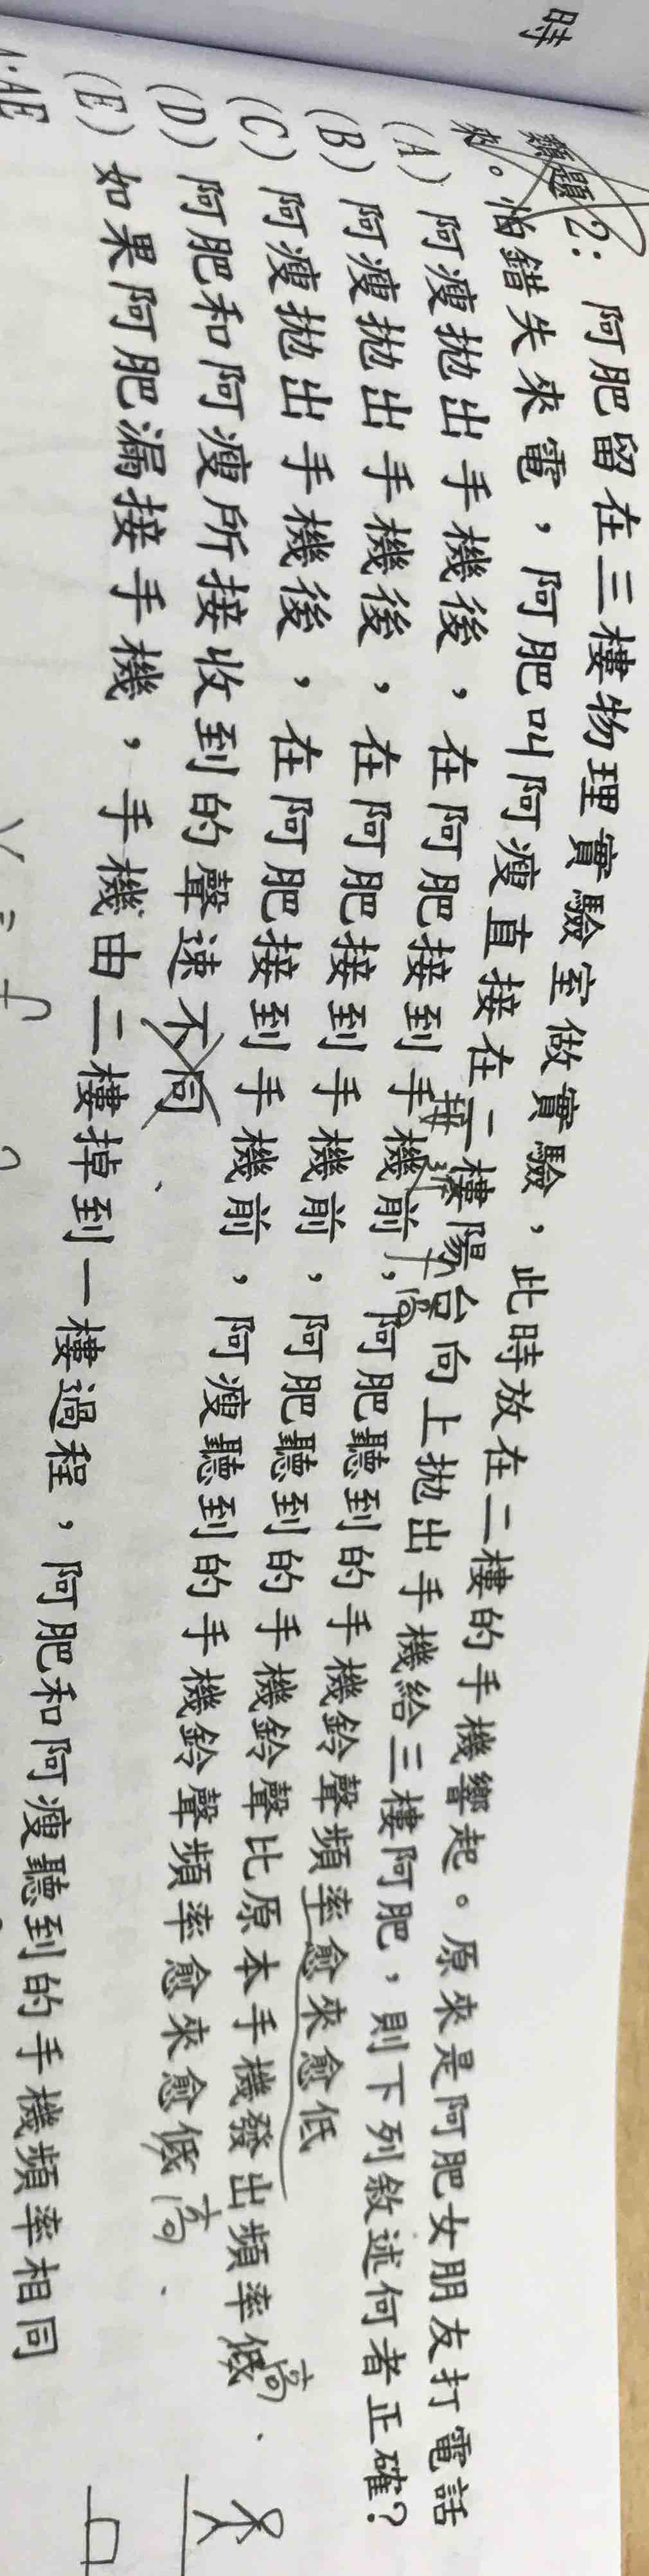 時
類題2：阿肥留在三樓物理實驗室做實驗，此時放在二樓的手機響起。原來是阿肥女朋友打電話
來。怕錯失來電，阿肥叫阿瘦直接在二樓陽台向上拋出手機給三樓阿肥，則下列敘述何者正確?
(A) 阿瘦拋出手機後，在阿肥接到手機前，阿肥聽到的手機鈴聲頻率愈來愈低
(B) 阿瘦拋出手機後，在阿肥接到手機前，阿肥聽到的手機鈴聲比原本手機發出頻率低
高
(C) 阿瘦拋出手機後，在阿肥接到手機前，阿瘦聽到的手機鈴聲頻率愈來愈低
高
(D) 阿肥和阿瘦所接收到的聲速不同
(E) 如果阿肥漏接手機，手機由二樓掉到一樓過程，阿肥和阿瘦聽到的手機頻率相同
A:AE